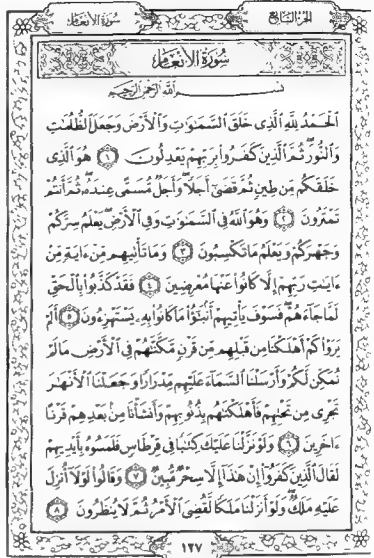 سُورَةُ الأَنْعَامِ الجُزْءُ السَّابِعُ
سُورَةُ الأَنْعَامِ
بِسْمِ ٱللَّهِ ٱلرَّحْمَٰنِ ٱلرَّحِيمِ
ٱلْحَمْدُ لِلَّهِ ٱلَّذِى خَلَقَ ٱلسَّمَٰوَٰتِ وَٱلْأَرْضَ وَجَعَلَ ٱلظُّلُمَٰتِ
وَٱلنُّورَ ۖ ثُمَّ ٱلَّذِينَ كَفَرُوا۟ بِرَبِّهِمْ يَعْدِلُونَ ١ هُوَ ٱلَّذِى
خَلَقَكُم مِّن طِينٍ ثُمَّ قَضَىٰٓ أَجَلًا ۖ وَأَجَلٌ مُّسَمًّى عِندَهُۥ ۖ ثُمَّ أَنتُمْ
تَمْتَرُونَ ٢ وَهُوَ ٱللَّهُ فِى ٱلسَّمَٰوَٰتِ وَفِى ٱلْأَرْضِ ۖ يَعْلَمُ سِرَّكُمْ
وَجَهْرَكُمْ وَيَعْلَمُ مَا تَكْسِبُونَ ٣ وَمَا تَأْتِيهِم مِّنْ ءَايَةٍ مِّنْ
ءَايَٰتِ رَبِّهِمْ إِلَّا كَانُوا۟ عَنْهَا مُعْرِضِينَ ٤ فَقَدْ كَذَّبُوا۟ بِٱلْحَقِّ
لَمَّا جَآءَهُمْ ۖ فَسَوْفَ يَأْتِيهِمْ أَنۢبَٰٓؤُا۟ مَا كَانُوا۟ بِهِۦ يَسْتَهْزِءُونَ ٥ أَلَمْ
يَرَوْا۟ كَمْ أَهْلَكْنَا مِن قَبْلِهِم مِّن قَرْنٍ مَّكَّنَّٰهُمْ فِى ٱلْأَرْضِ مَا لَمْ
نُمَكِّن لَّكُمْ وَأَرْسَلْنَا ٱلسَّمَآءَ عَلَيْهِم مِّدْرَارًا وَجَعَلْنَا ٱلْأَنْهَٰرَ
تَجْرِى مِن تَحْتِهِمْ فَأَهْلَكْنَٰهُم بِذُنُوبِهِمْ وَأَنشَأْنَا مِنۢ بَعْدِهِمْ قَرْنًا
ءَاخَرِينَ ٦ وَلَوْ نَزَّلْنَا عَلَيْكَ كِتَٰبًا فِى قِرْطَاسٍ فَلَمَسُوهُ بِأَيْدِيهِمْ
لَقَالَ ٱلَّذِينَ كَفَرُوٓا۟ إِنْ هَٰذَآ إِلَّا سِحْرٌ مُّبِينٌ ٧ وَقَالُوا۟ لَوْلَآ أُنزِلَ
عَلَيْهِ مَلَكٌ ۖ وَلَوْ أَنزَلْنَا مَلَكًا لَّقُضِىَ ٱلْأَمْرُ ثُمَّ لَا يُنظَرُونَ ٨
١٢٧